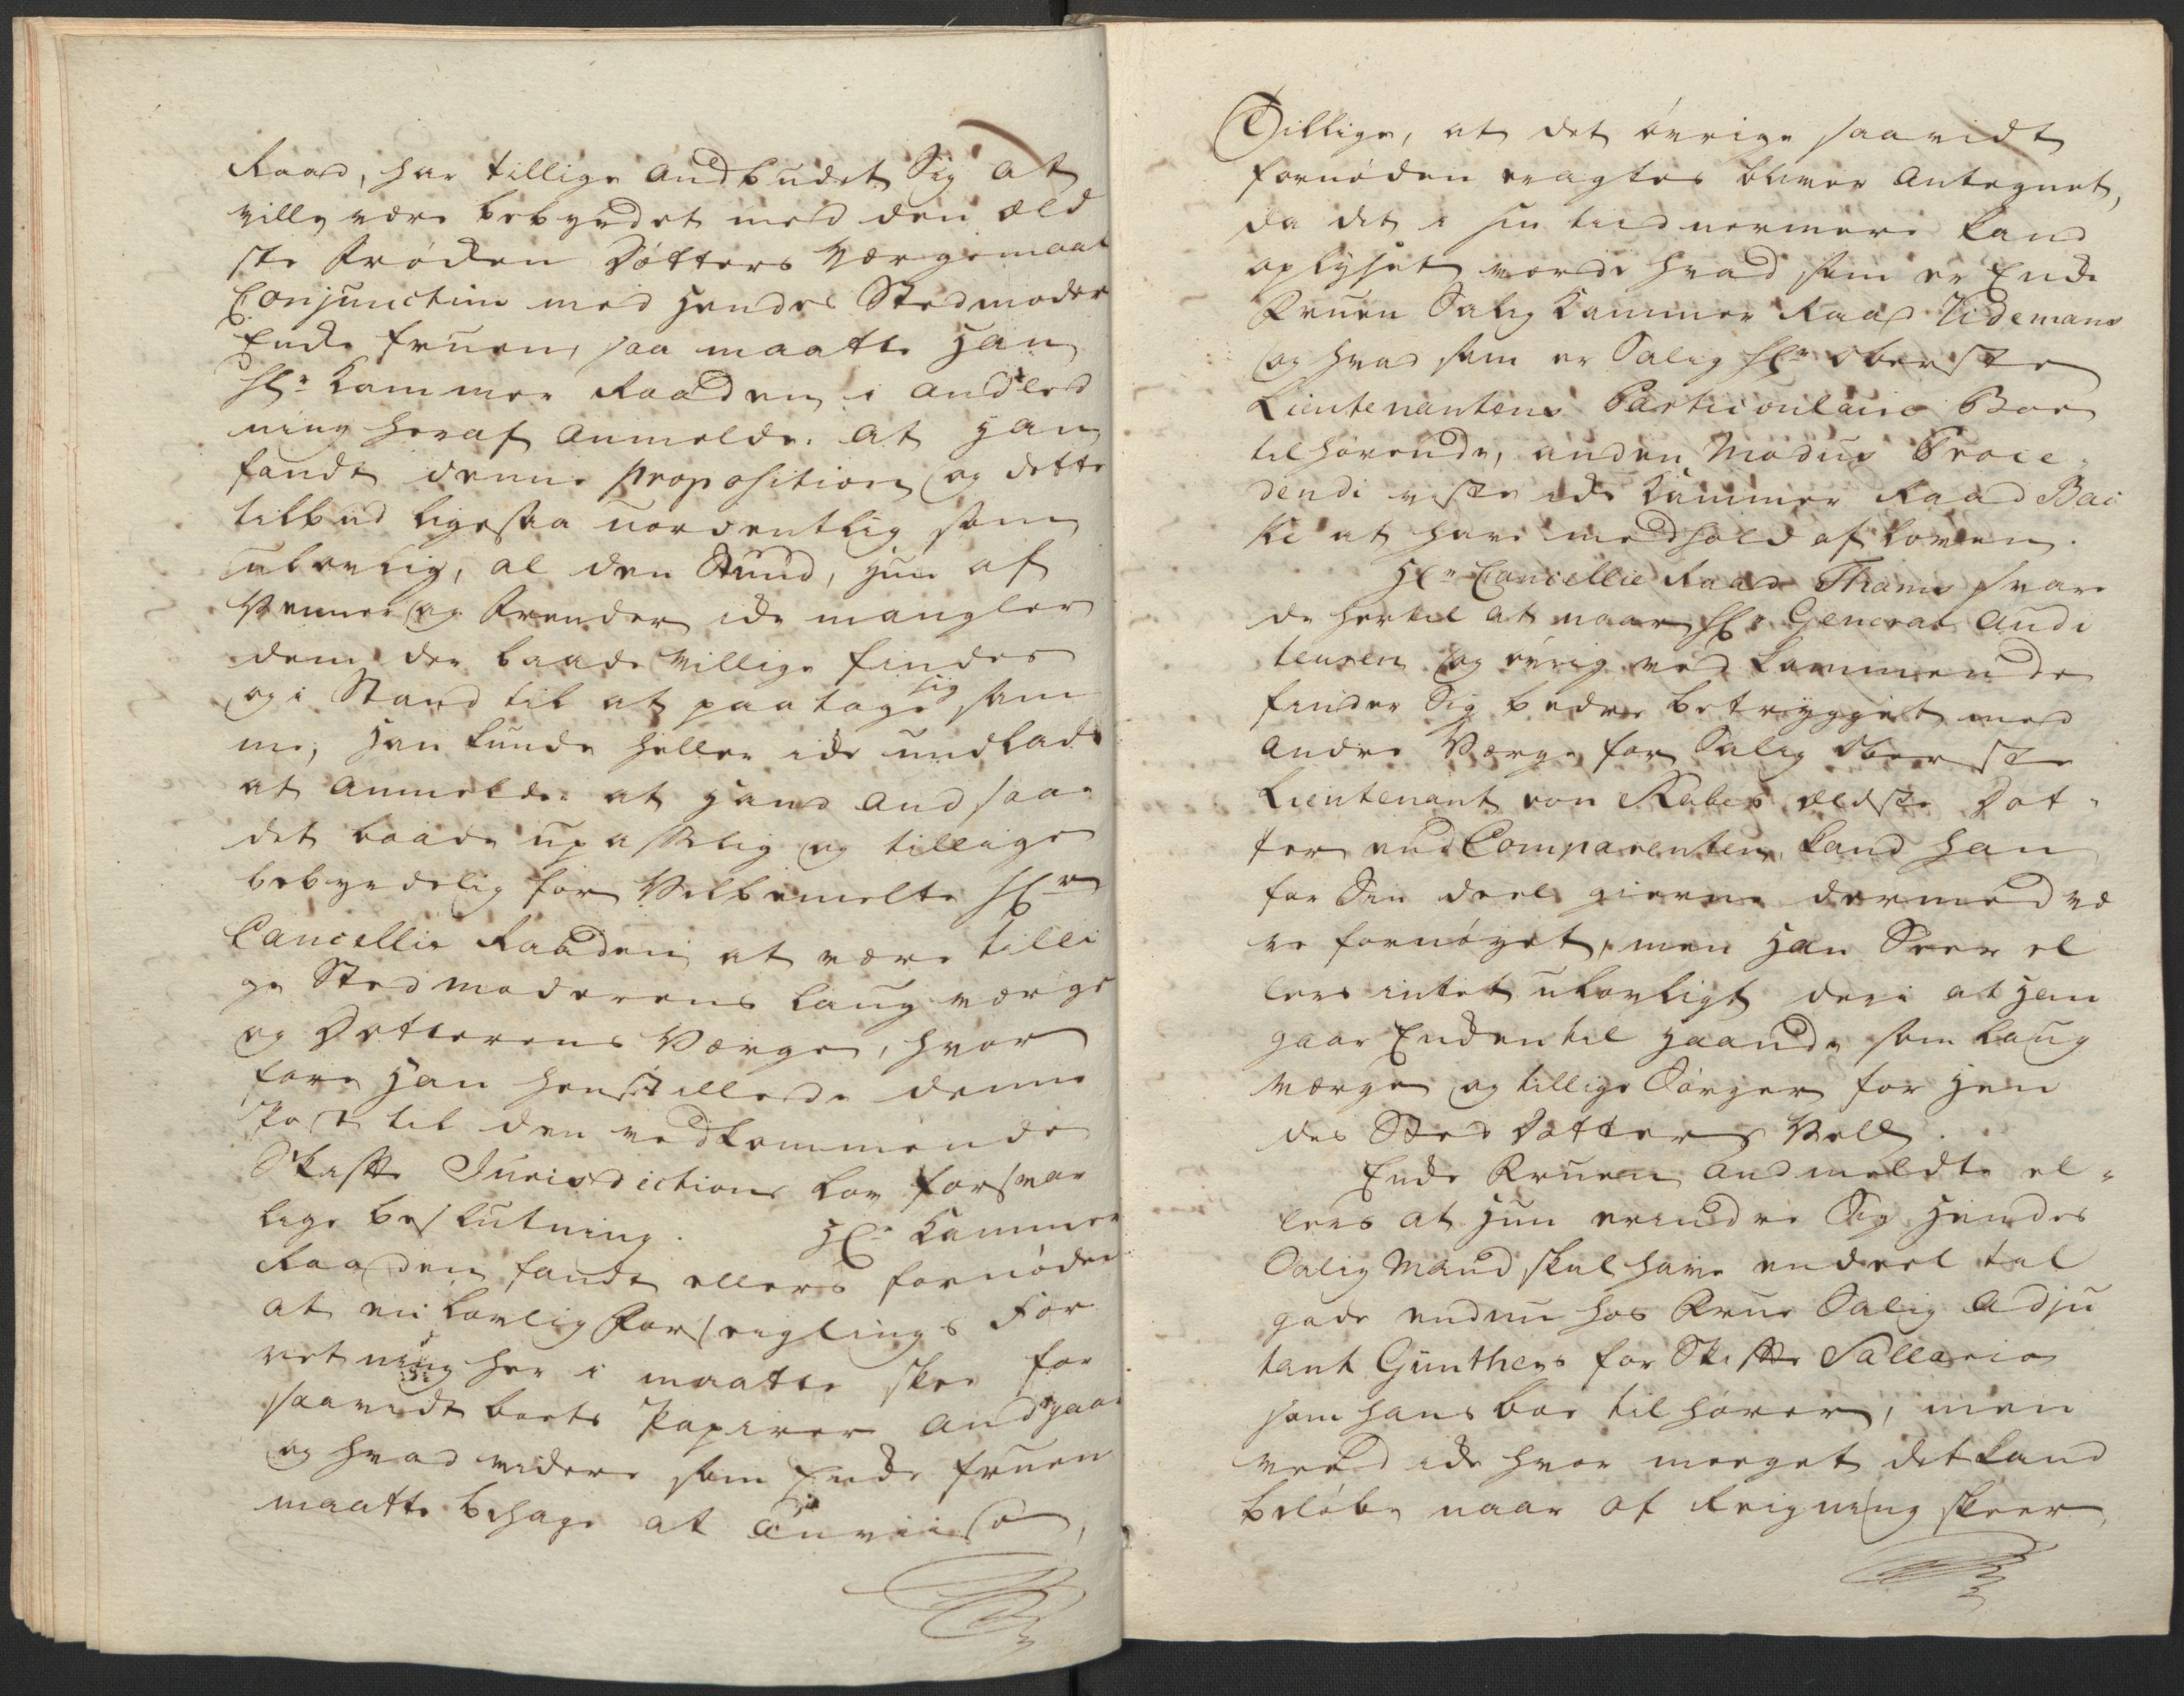 Raad, har tillige andbudet Sig at
ville være bebyrdet med den æld
ste Frøcken Dotters Værgemaal
Conjunctim med hendes Stedmoder
Encke Fruen, saa maatte han
Hr. Kammer Raaden i andled
ning heraf anmelde: at han
fandt denne Proposition og dette
tilbud ligesaa uordentlig som
ulovlig, al den Stund, hun af
Venner og Frender icke mangler
dem der baade villige findes
og i Stand til at paatage sig sam
me, han kunde heller icke undlade
at anmelde: at hand andsaae
det baade upasselig og tillige
bebyrdelig for Velbemelte Hr.
Cancellie Raaden at være tilli
ge Stedmoderens Laugværge
og Dotterens Værge, hvor
fore han henstillede denne
Post til den vedkommende
Skifte Jurisdictions Lov forsvar
lige beslutning. Hr. Kammer
Raaden fandt ellers fornøden
at en lovlig Forseiglings For
retning her i maatte skee for
saavidt boets Papirer andgaar
og hvad videre som Encke Fruen
maatte behage at anviise,
Tillige, at det øvrige saavidt
fornøden eragtes bliver antegnet,
da det i sin tiid nermere kand
oplyset worde hvad som er Encke
Fruen Salig Kammer Raad Tidemans
og hvad som er Salig Hr. Oberste
Lieutenantens Particulaire Boe
tilhørende, anden Modus Proce-
dendi viste icke Kammer Raad Bac
ke at have medhold af Loven.
Hr. Cancellie Raad Thams svare
de hertil at naar Hr. General Audi
teuren og øvrig ved kommende
finder Sig bedre betrygget med
andre Værge for Salig Oberste
Lieutenant von Rabes eldste Dot-
ter end Comparenten, kand han
for Sin deel gierne dermed væ
re fornøyet, men han Seer el
lers intet ulovligt deri at han
gaar Encken til haande som Laug
værge og tillige Sørger for hen
des Sted Dotters Vell.
Encke Fruen andmeldte el-
lers at hun erindre Sig hendes
Salig Mand skal have endeel til
gode endnu hos Frue Salig Adju
tant Günthers for Skifte Sallario
som hans boe tilhører, men
veed icke hvor meeget det kand
beløbe naar af Reigning skeer,